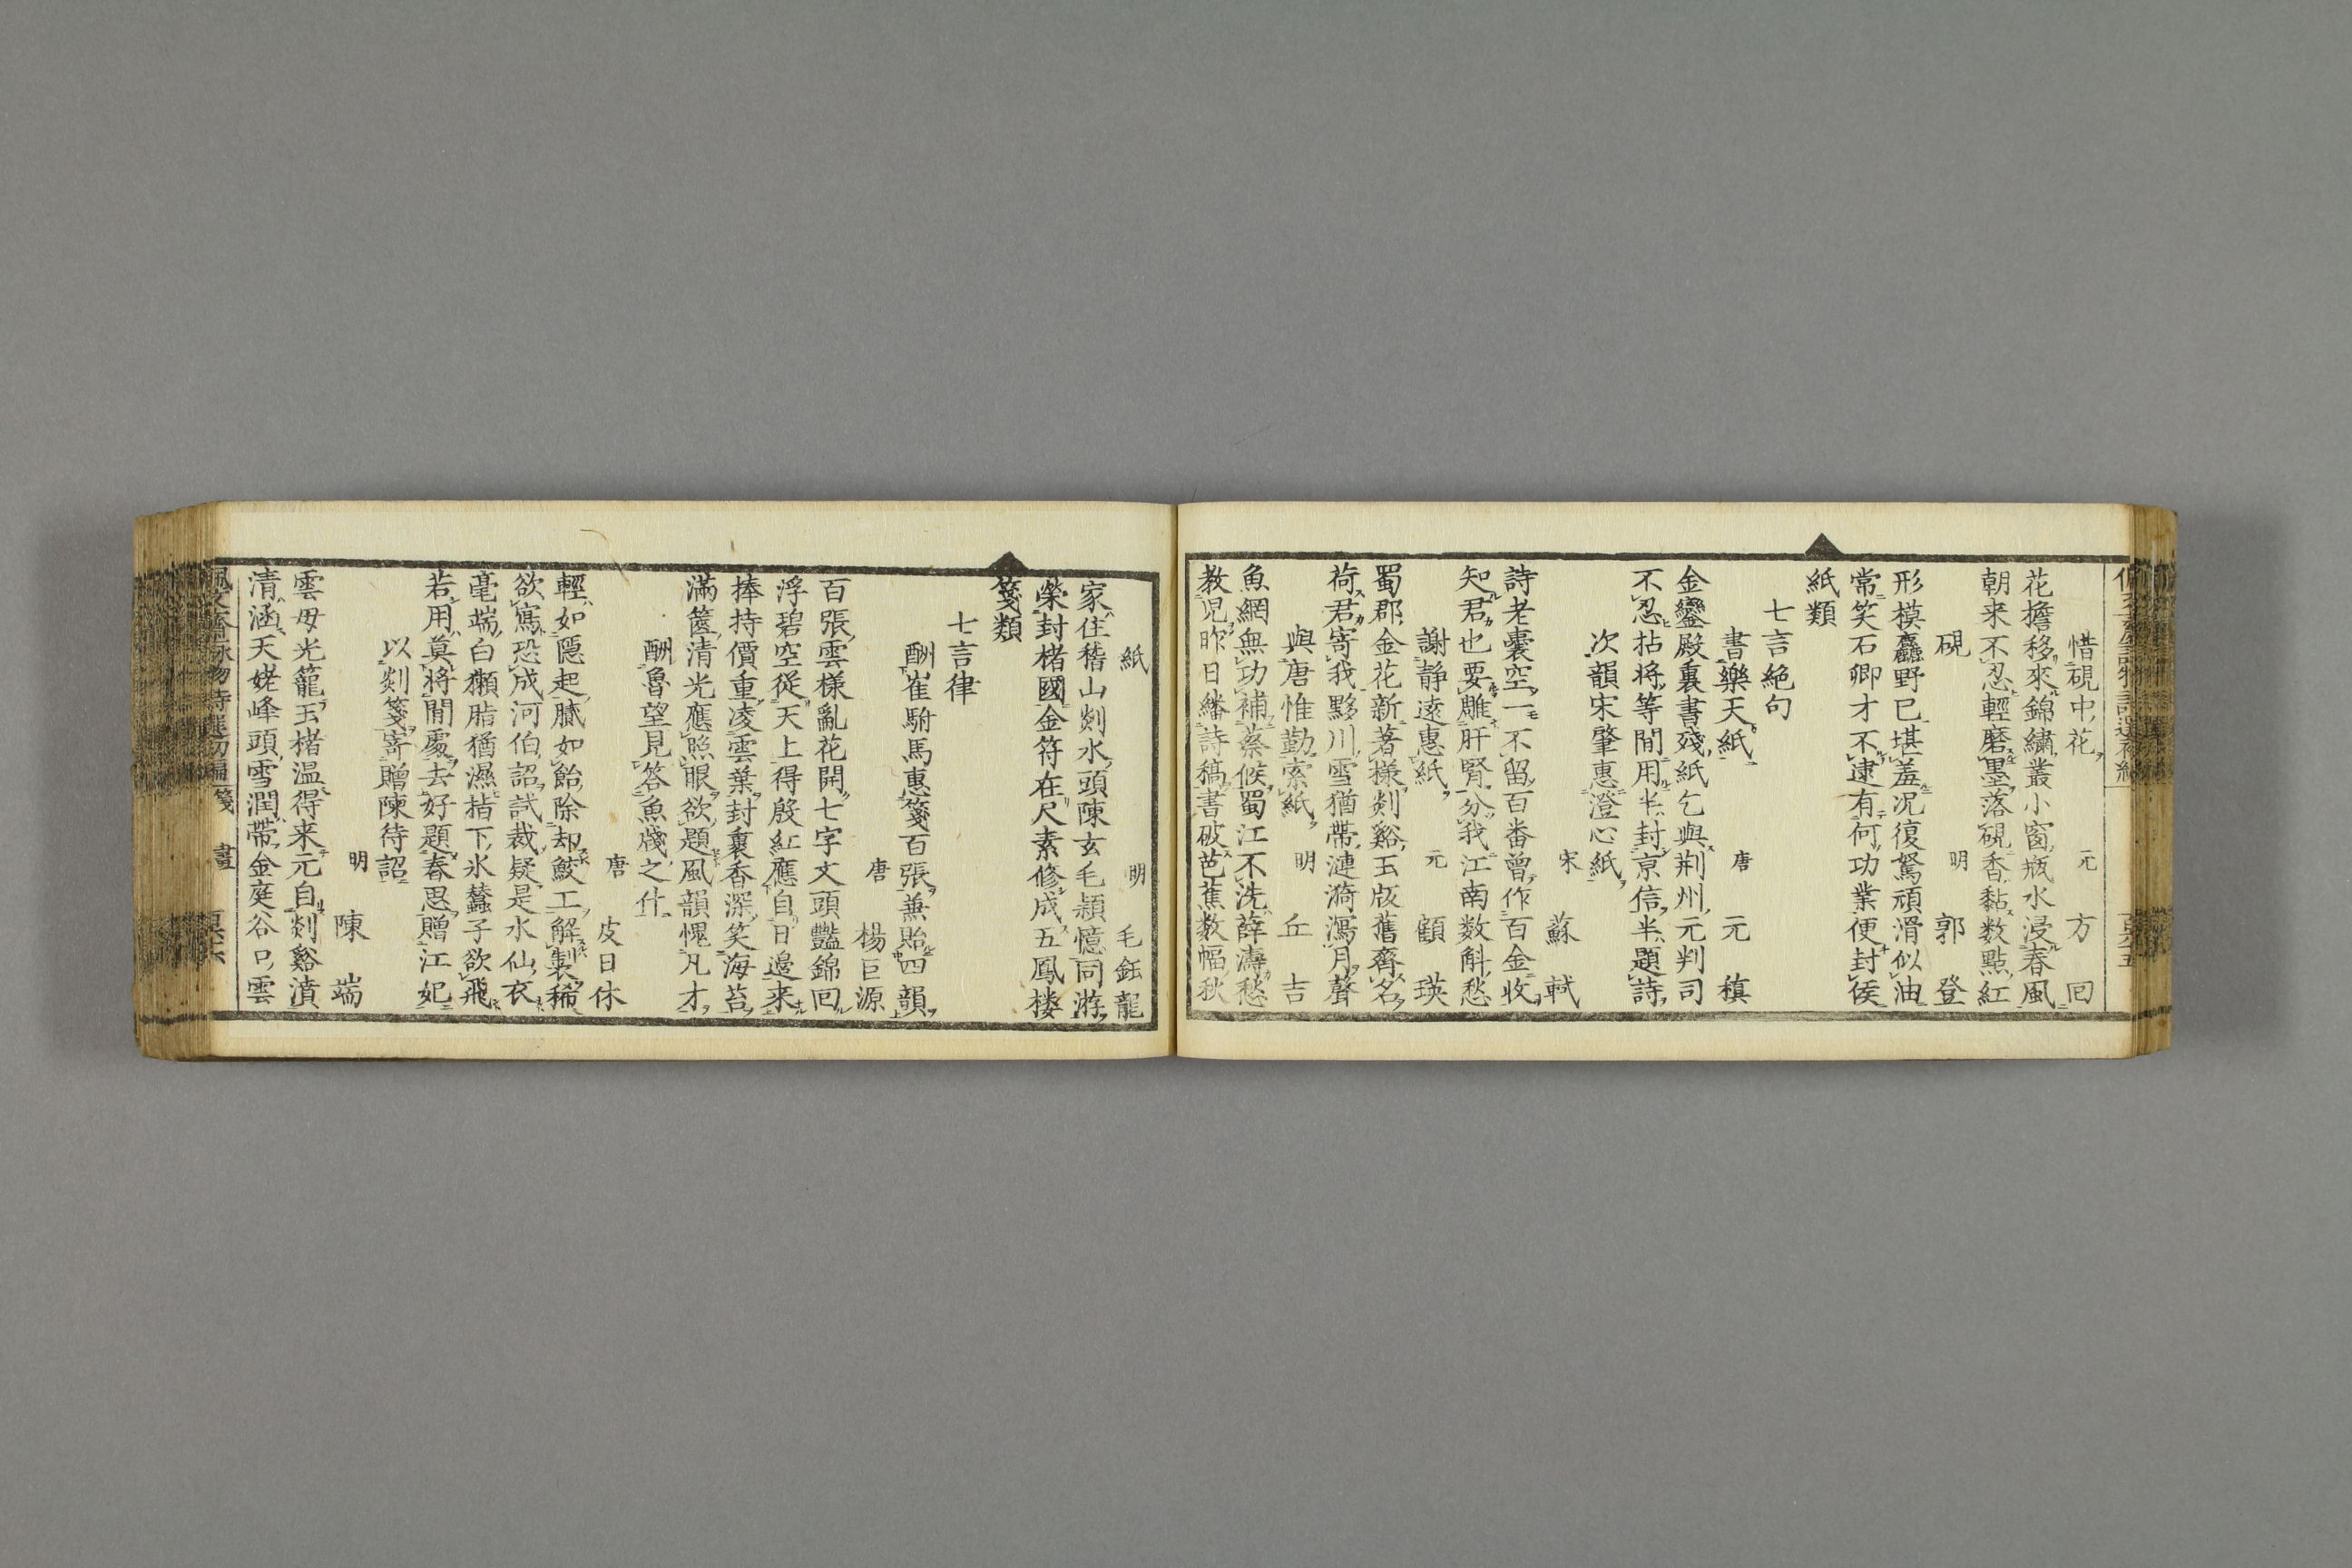 惜硯中花 元 方回
花擔移來錦繡叢小窗瓶水浸春風
朝来不忍輕磨墨落硯香黏数點紅
硯 明 郭登
形模麤野已堪羞况復駑頑滑似油
常笑石卿才不逮有何功業便封侯
紙類
七言絶句
書樂天紙 唐 元稹
金鑾殿裏書殘紙乞與荆州元判司
不忍拈将等閒用半封京信半題詩
次韻宋肇惠澄心紙
宋 蘇軾
詩老囊空一不留百番曾作百金收
知君也要雕肝腎分我江南数斛愁
謝静遠惠紙 元 顧瑛
蜀郡金花新著様剡谿玉版舊齊名
荷君寄我黟川雪猶帶漣漪瀉月聲
與唐惟勤索紙 明 丘吉
魚網無功補蔡候蜀江不洗薛濤愁
教児昨日繙詩稿書破芭蕉数幅秋
紙 明 毛鈺龍
家住稽山剡水頭陳玄毛頴憶同游
榮封楮國金符在尺素修成五鳳楼
箋類
七言律
酬崔駙馬惠箋百張兼貽四韻
唐 楊巨源
百張雲様亂花開七字文頭艷錦回
浮碧空從天上得殷紅應自日邊来
捧持價重凌雲葉封裏香深笑海苔
滿篋清光應照眼欲題風韻愧凡才
酬魯望見答魚牋之什
唐 皮日休
輕如隱起膩如飴除却鮫工解製稀
欲寫恐成河伯詔試裁疑是水仙衣
毫端白獺脂猶濕指下氷蠶子欲飛
若用莫将閒處去好題春思贈江妃
以剡箋寄贈陳待詔
明 陳端
雲母光籠玉楮温得来元自剡谿濆
清涵天姥峰頭雪潤帶金庭谷口雲
佩文齋詠物詩選初編 箋 畫